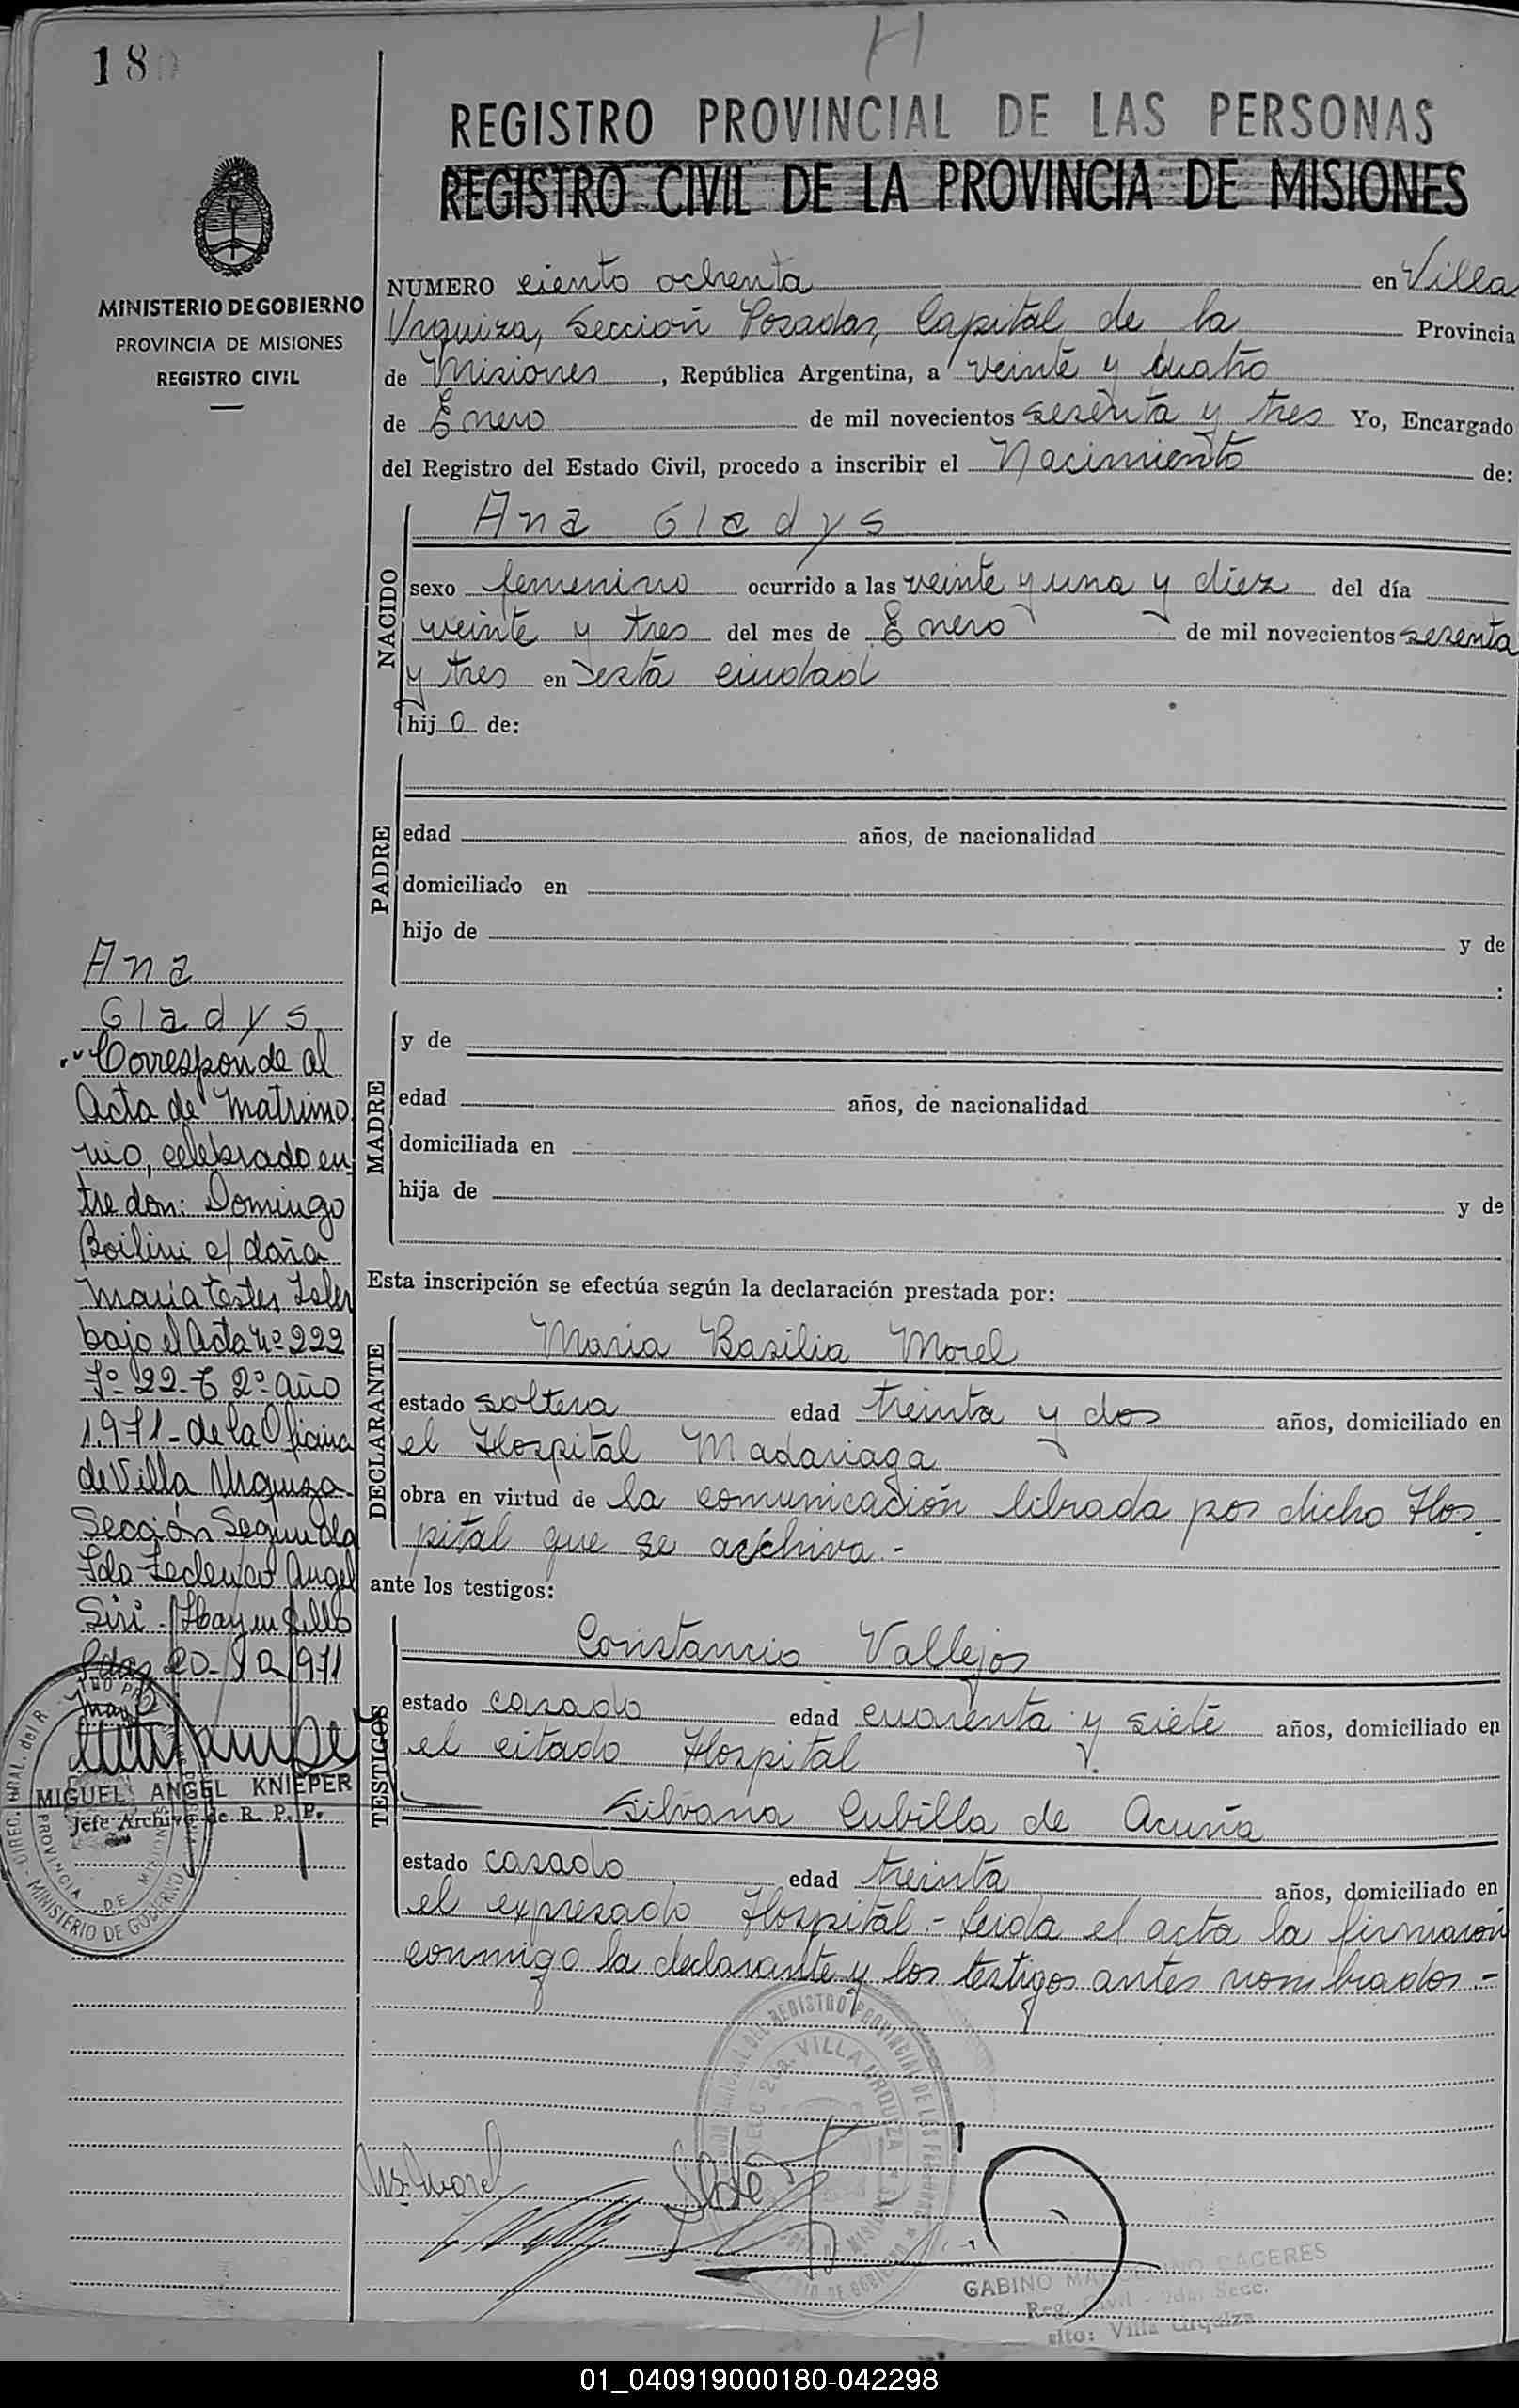 180
H
REGISTRO PROVINCIAL DE LAS PERSONAS
REGISTRO CIVIL DE LA PROVINCIA DE MISIONES
MINISTERIO DE GOBIERNO
PROVINCIA DE MISIONES
REGISTRO CIVIL
NUMERO ciento ochenta en Villa
Urquiza, Sección Posadas, Capital de la Provincia
de Misiones, República Argentina, a veinte y cuatro
de Enero de mil novecientos sesenta y tres Yo, Encargado
del Registro del Estado Civil, procedo a inscribir el Nacimiento de:
NACIDO
Ana Gladys
sexo femenino ocurrido a las veinte y una y diez del día
veinte y tres del mes de Enero de mil novecientos sesenta
y tres en esta ciudad
hij a de:
PADRE
edad años, de nacionalidad
domiciliado en
hijo de y de
:
MADRE
y de
edad años, de nacionalidad
domiciliada en
hija de y de
Esta inscripción se efectúa según la declaración prestada por:
DECLARANTE
Maria Basilia Morel
estado soltera edad treinta y dos años, domiciliado en
el Hospital Madariaga
obra en virtud de la comunicación librada por dicho Hos
pital que se archiva.-
ante los testigos:
TESTIGOS
Constancio Vallejos
estado casado edad cuarenta y siete años, domiciliado en
el citado Hospital
Silvana Cubilla de Acuña
estado casado edad treinta años, domiciliado en
el expresado Hospital.- Leida el acta la firmaron
conmigo la declarante y los testigos antes nombrados.-
Ana
Gladys
Corresponde al
Acta de Matrimo
nio, celebrado en
tre don: Domingo
Boilini c/ doña
María Ester
bajo el Acta Nº 222
Fº 22- T 2º año
1.971- de la Oficina
de Villa Urquiza
Sección Segunda
Fdo Federico Angel
Siri - Hay un sello
Pdas 20-
MIGUEL ANGEL KNIEPER
Jefe Archivo de R. P. P.
DIREC. GRAL. del R
PROVINCIA DE MISIONES
MINISTERIO DE GOBIERNO
DEL REGISTRO PROVINCIAL DE LAS PERSONAS
VILLA URQUIZA
Morel
GABINO CACERES
Reg. Civil - 2da. Secc.
Villa Urquiza
01_040919000180-042298